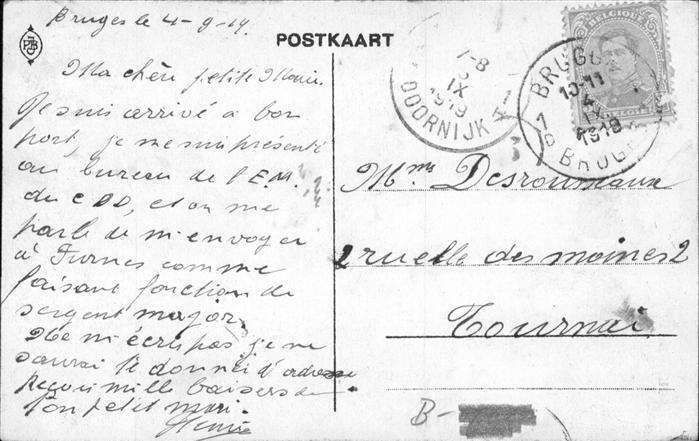 Bruges le 4-9-19.
POSTKAART
Ma chère petite Marie.
Je suis arrivé à bon
port, je me suis présenté
au bureau de l'E.M.
du C D D, et on me
parle de m'envoyer
à Furnes comme
faisant fonction de
sergent major.
Ne m'écris pas, je ne
saurai te donner d'adresse
Reçois mille baisers de
ton petit mari.
7-8
IX
1919
DOORNIJK
BRUGGE
10-11
4
IX
1919
BRUGES
BELGIQUE
Mme Desrousseaux
2 ruelle des moines 2
Tournai
B-